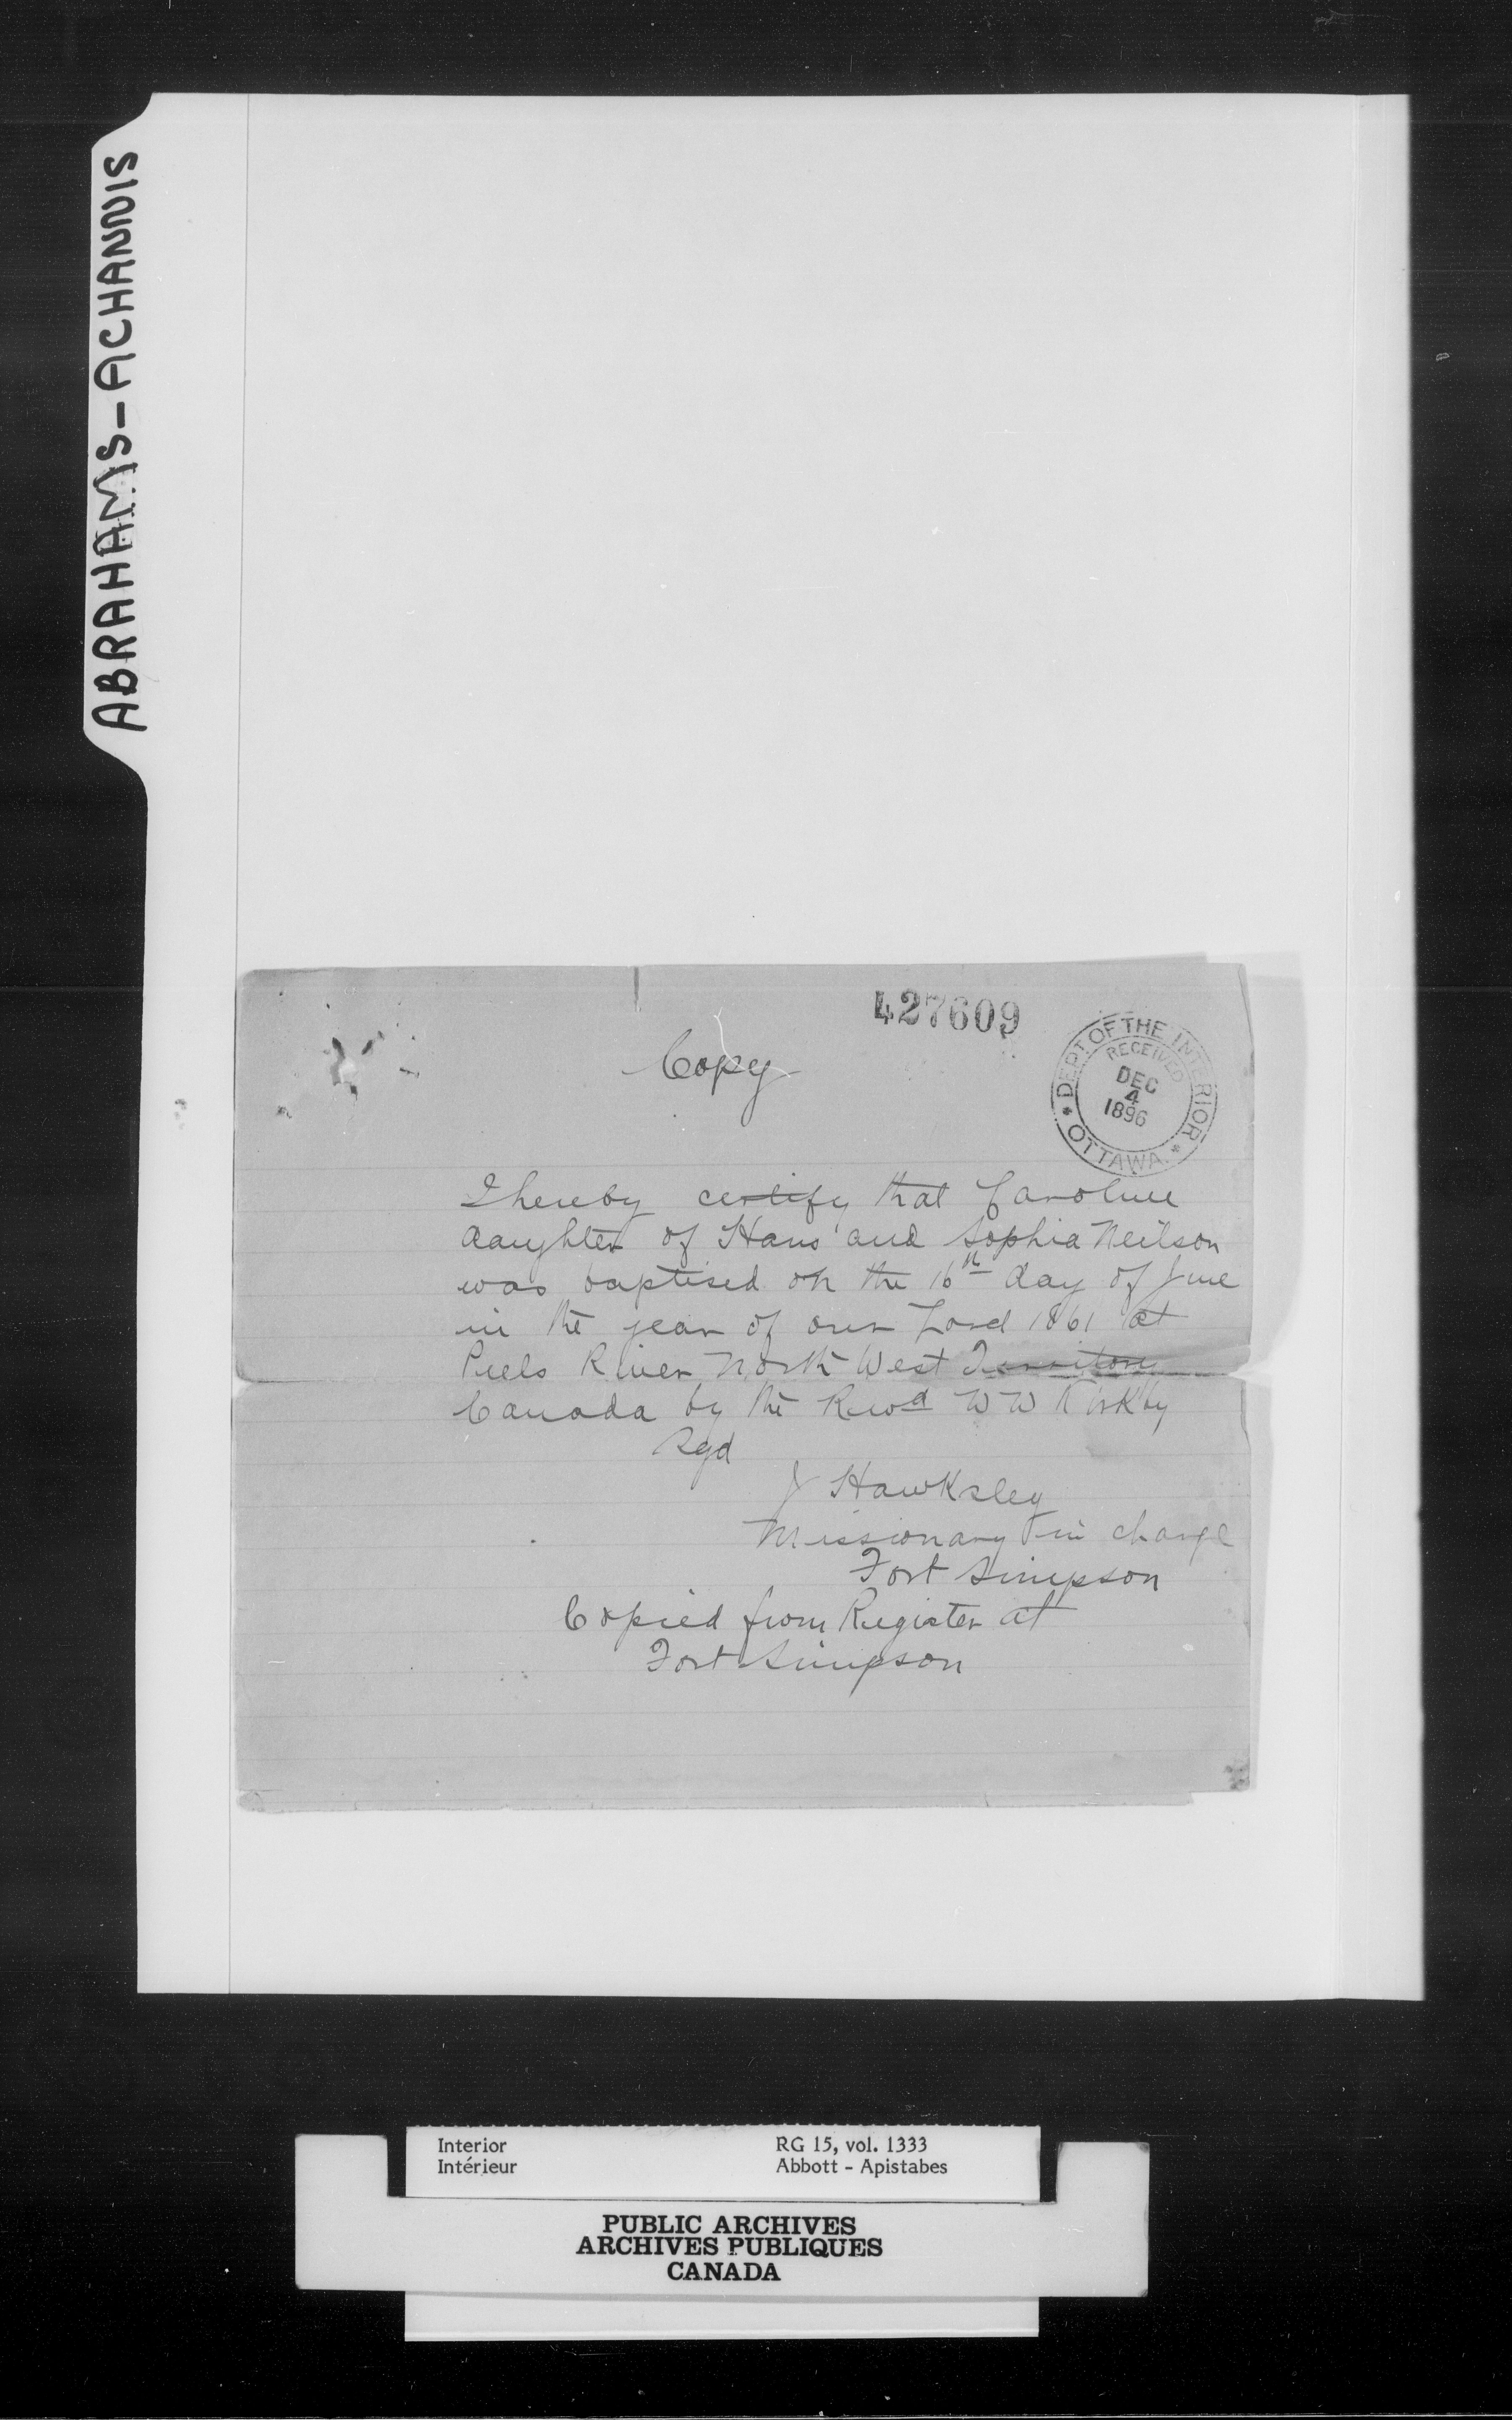 ABRAHAMS-ACHANNIS
427609
Copy
DEPT. OF THE INTERIOR
RECEIVED
DEC
4
1896
* OTTAWA. *
I hereby certify that Caroline
daughter of Hans and Sophia Neilson
was baptised on the 16th day of June
in the year of our Lord 1861 at
Peels River North West Territory
Canada by the Revd W W Kirkby
Sgd
J Hawksley
Missionary in charge
Fort Simpson
Copied from Register at
Fort Simpson
Interior RG 15, vol. 1333
Intérieur Abbott - Apistabes
PUBLIC ARCHIVES
ARCHIVES PUBLIQUES
CANADA